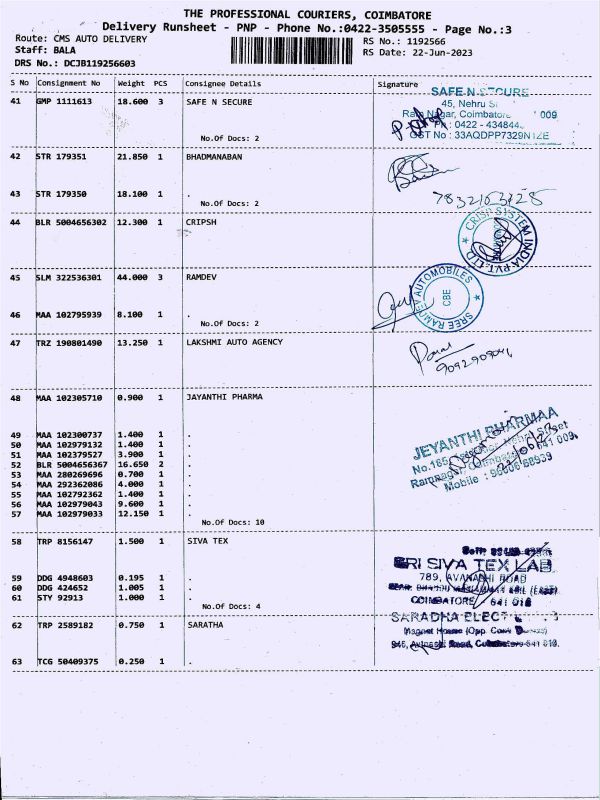 THE PROFESSIONAL COURIERS, COIMBATORE
Delivery Runsheet - PNP - Phone No.:0422-3505555 - Page No.:3
Route: CMS AUTO DELIVERY
RS No.: 1192566
Staff: BALA
RS Date: 22-Jun-2023
DRS No.: DCJB119256603
S No Consignment No Weight PCS Consignee Details Signature
41 GMP 1111613 18.600 3 SAFE N SECURE
SAFE N SECURE
45, Nehru
Ram Nagar, Coimbatore 009
Ph : 0422 - 434844
GST No : 33AQDPP7329N1ZE
No.Of Docs: 2
42 STR 179351 21.850 1 BHADMANABAN
43 STR 179350 18.100 1 .
No.Of Docs: 2
44 BLR 5004656302 12.300 1 CRIPSH
CRISP SYSTEM INDIA PVT. LTD
45 SLM 322536301 44.000 3 RAMDEV
SREE RAMDEV AUTOMOBILES
CBE
46 MAA 102795939 8.100 1 .
No.Of Docs: 2
47 TRZ 190801490 13.250 1 LAKSHMI AUTO AGENCY
48 MAA 102305710 0.900 1 JAYANTHI PHARMA
JEYANTHI PHARMAA
No.165, Nehru Street
Ramnagar, Coimbatore 641 009.
Mobile :
49 MAA 102300737 1.400 1 .
50 MAA 102979132 1.400 1 .
51 MAA 102379527 3.900 1 .
52 BLR 5004656367 16.650 2 .
53 MAA 280269696 0.700 1 .
54 MAA 292362086 4.000 1 .
55 MAA 102792362 1.400 1 .
56 MAA 102979043 9.600 1 .
57 MAA 102979033 12.150 1 .
No.Of Docs: 10
58 TRP 8156147 1.500 1 SIVA TEX
SRI SIVA TEX LAB
789, AVANASHI ROAD
COIMBATORE 641 018
59 DDG 4948603 0.195 1 .
60 DDG 424652 1.005 1 .
61 STY 92913 1.000 1 .
No.Of Docs: 4
62 TRP 2589182 0.750 1 SARATHA
SARADHA ELEC
Magnet House (Opp.
946, Avinashi Road, Coimbatore-641 018.
63 TCG 50409375 0.250 1 .